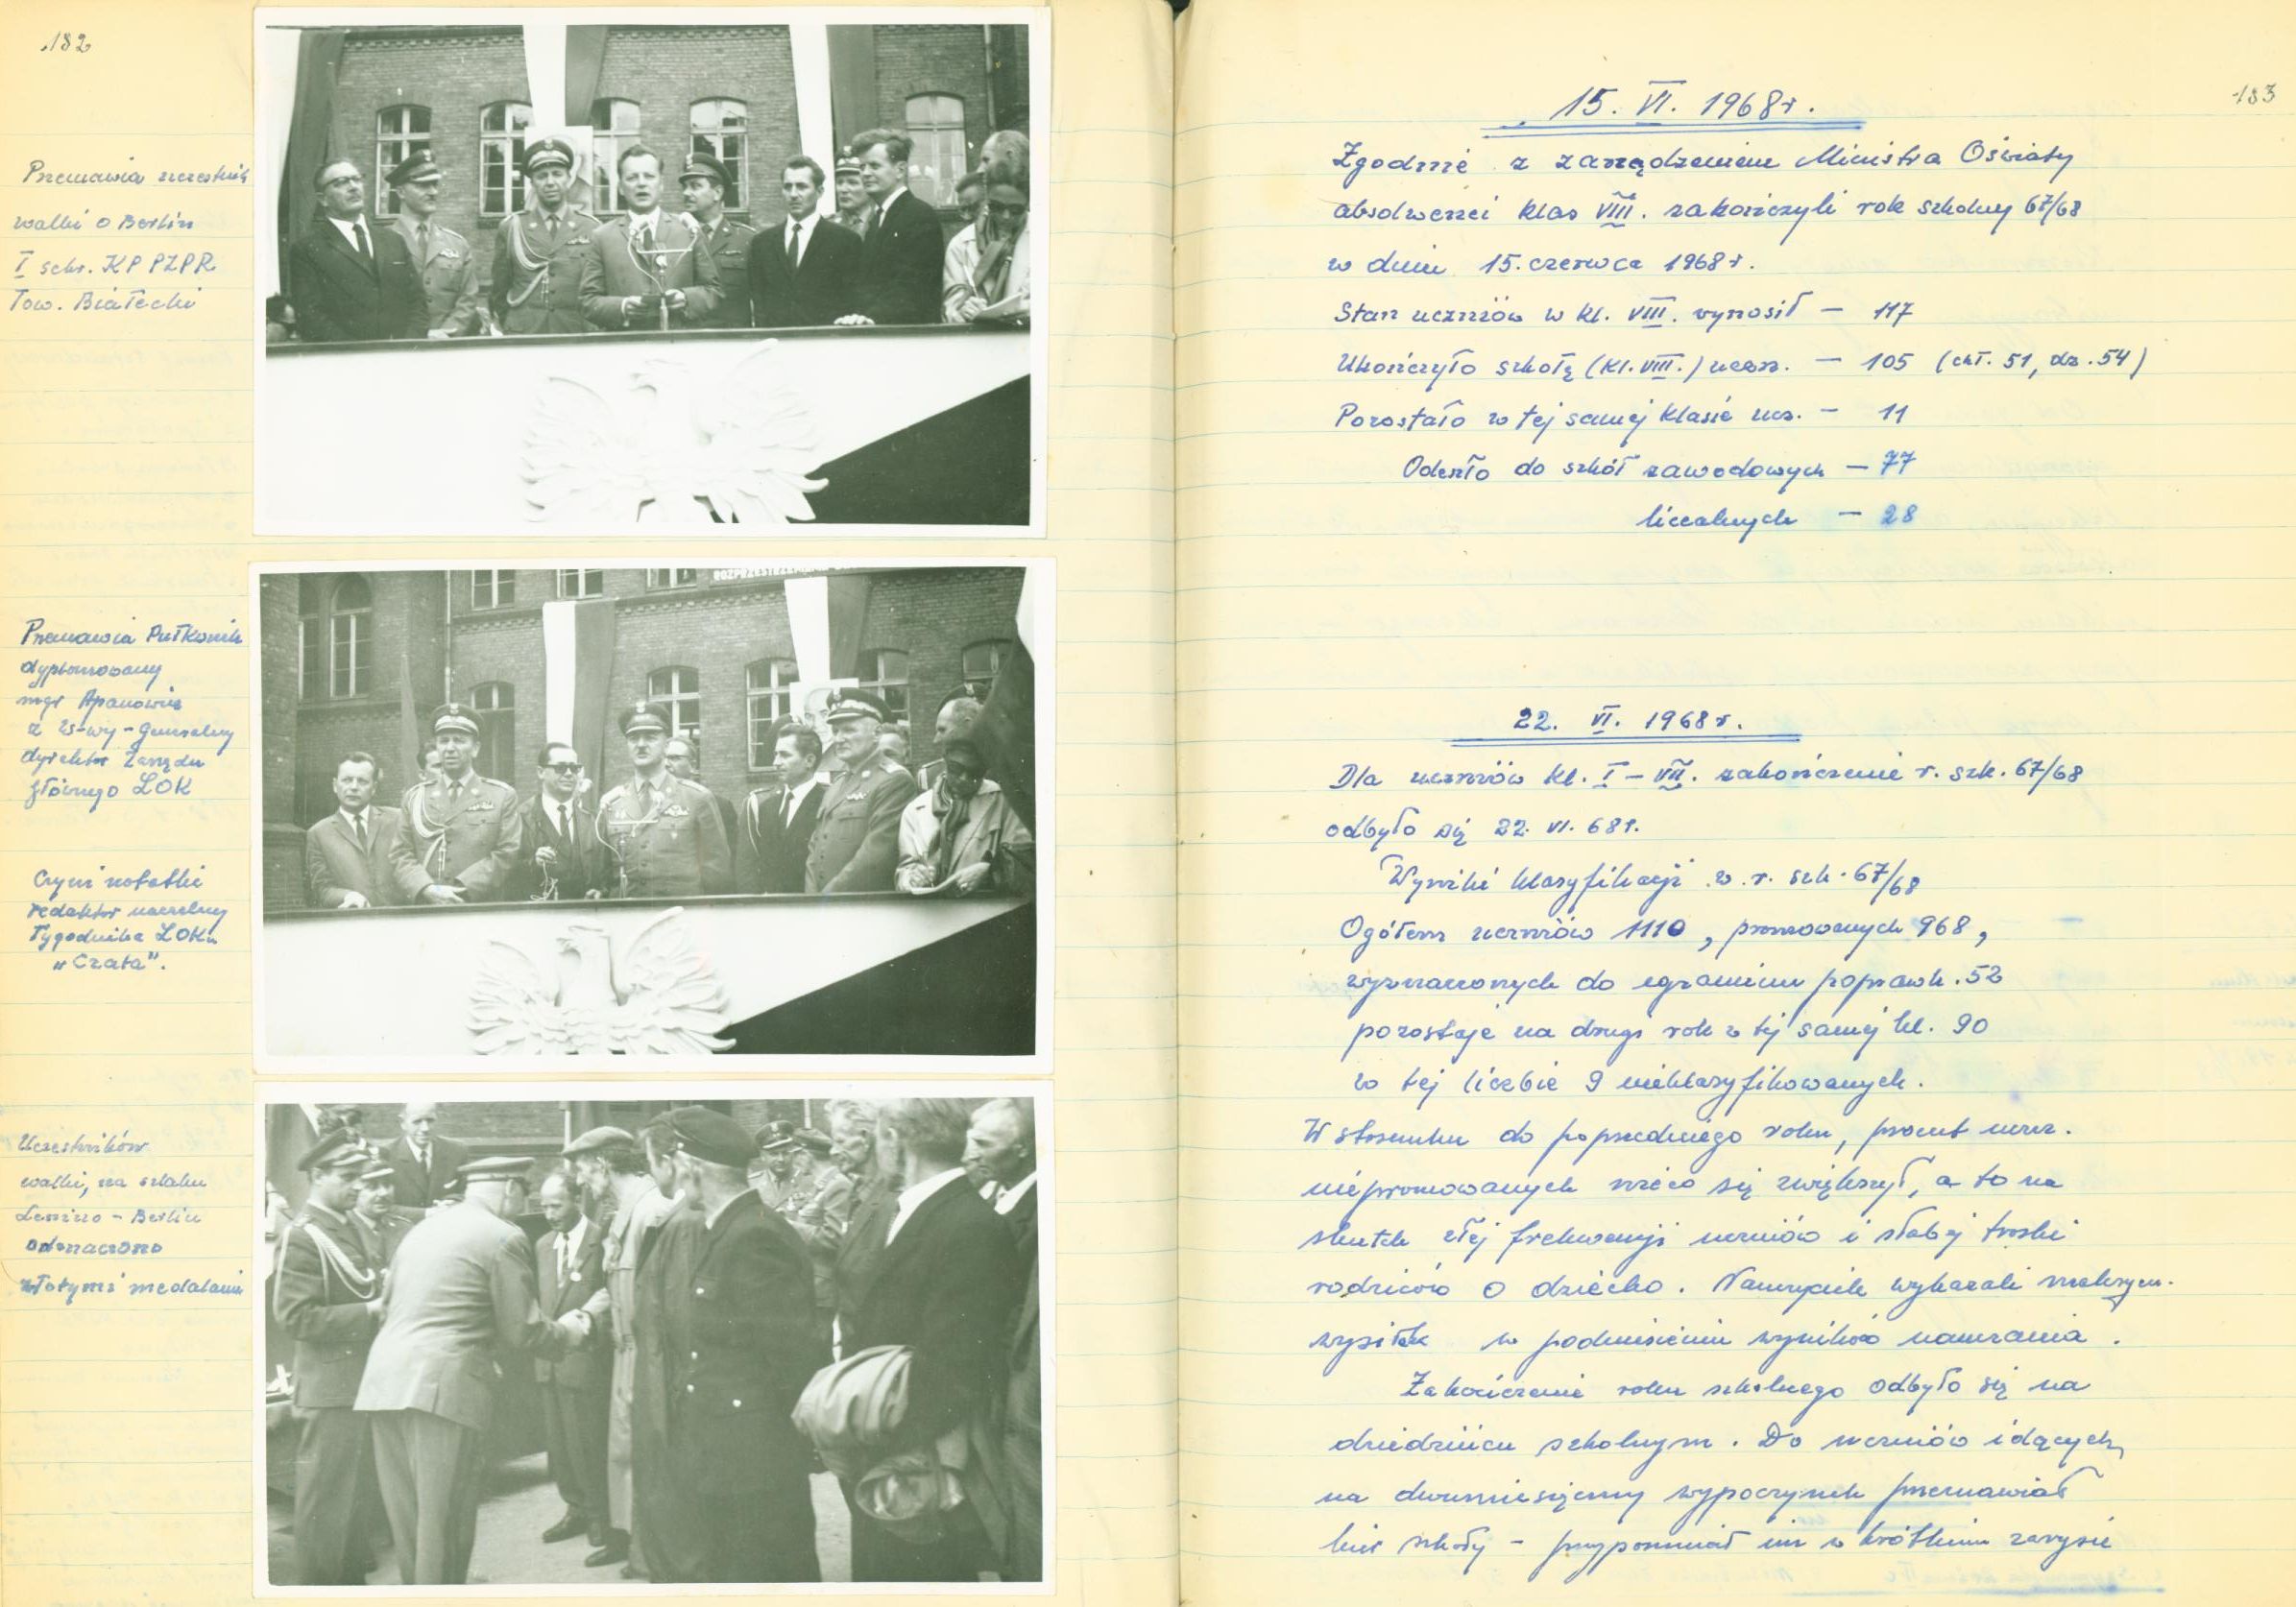 182
Przemawia uczestnik
walki o Berlin
I sekr. KP PZPR
Tow. Białecki
ROZPRZESTRZENIA
Przemawia Pułkownik
dyplomowany
mgr Apanowicz
z W-wy - Generalny
dyrektor Zarządu
głównego LOK
Czyni notatki
redaktor naczelny
Tygodnika LOKu
"Czata".
Uczestników
walki, na szlaku
Lenino - Berlin
odznaczono
złotymi medalami
183
15. VI. 1968 r.
Zgodnie z zarządzeniem Ministra Oświaty
absolwenci klas VIII. zakończyli rok szkolny 67/68
w dniu 15. czerwca 1968 r.
Stan uczniów w kl. VIII. wynosił - 117
Ukończyło szkołę (kl. VIII.) uczn. - 105 (chł. 51, dz. 54)
Pozostało w tej samej klasie ucz. - 11
Odeszło do szkół zawodowych - 77
licealnych - 28
22. VI. 1968 r.
Dla uczniów kl. I - VII. zakończenie r. szk. 67/68
odbyło się 22. VI. 68 r.
Wyniki klasyfikacji w r. szk. 67/68
Ogółem uczniów 1110, promowanych 968,
wyznaczonych do egzaminu poprawk. 52
pozostaje na drugi rok w tej samej kl. 90
w tej liczbie 9 nieklasyfikowanych.
W stosunku do poprzedniego roku, procent uczn.
niepromowanych nieco się zwiększył, a to na
skutek złej frekwencji uczniów i słabej troski
rodziców o dziecko. Nauczyciele wykazali maksym.
wysiłek w podniesieniu wyników nauczania.
Zakończenie roku szkolnego odbyło się na
dziedzińcu szkolnym. Do uczniów idących
na dwumiesięczny wypoczynek przemawiał
kier szkoły - przypomniał im w krótkim zarysie